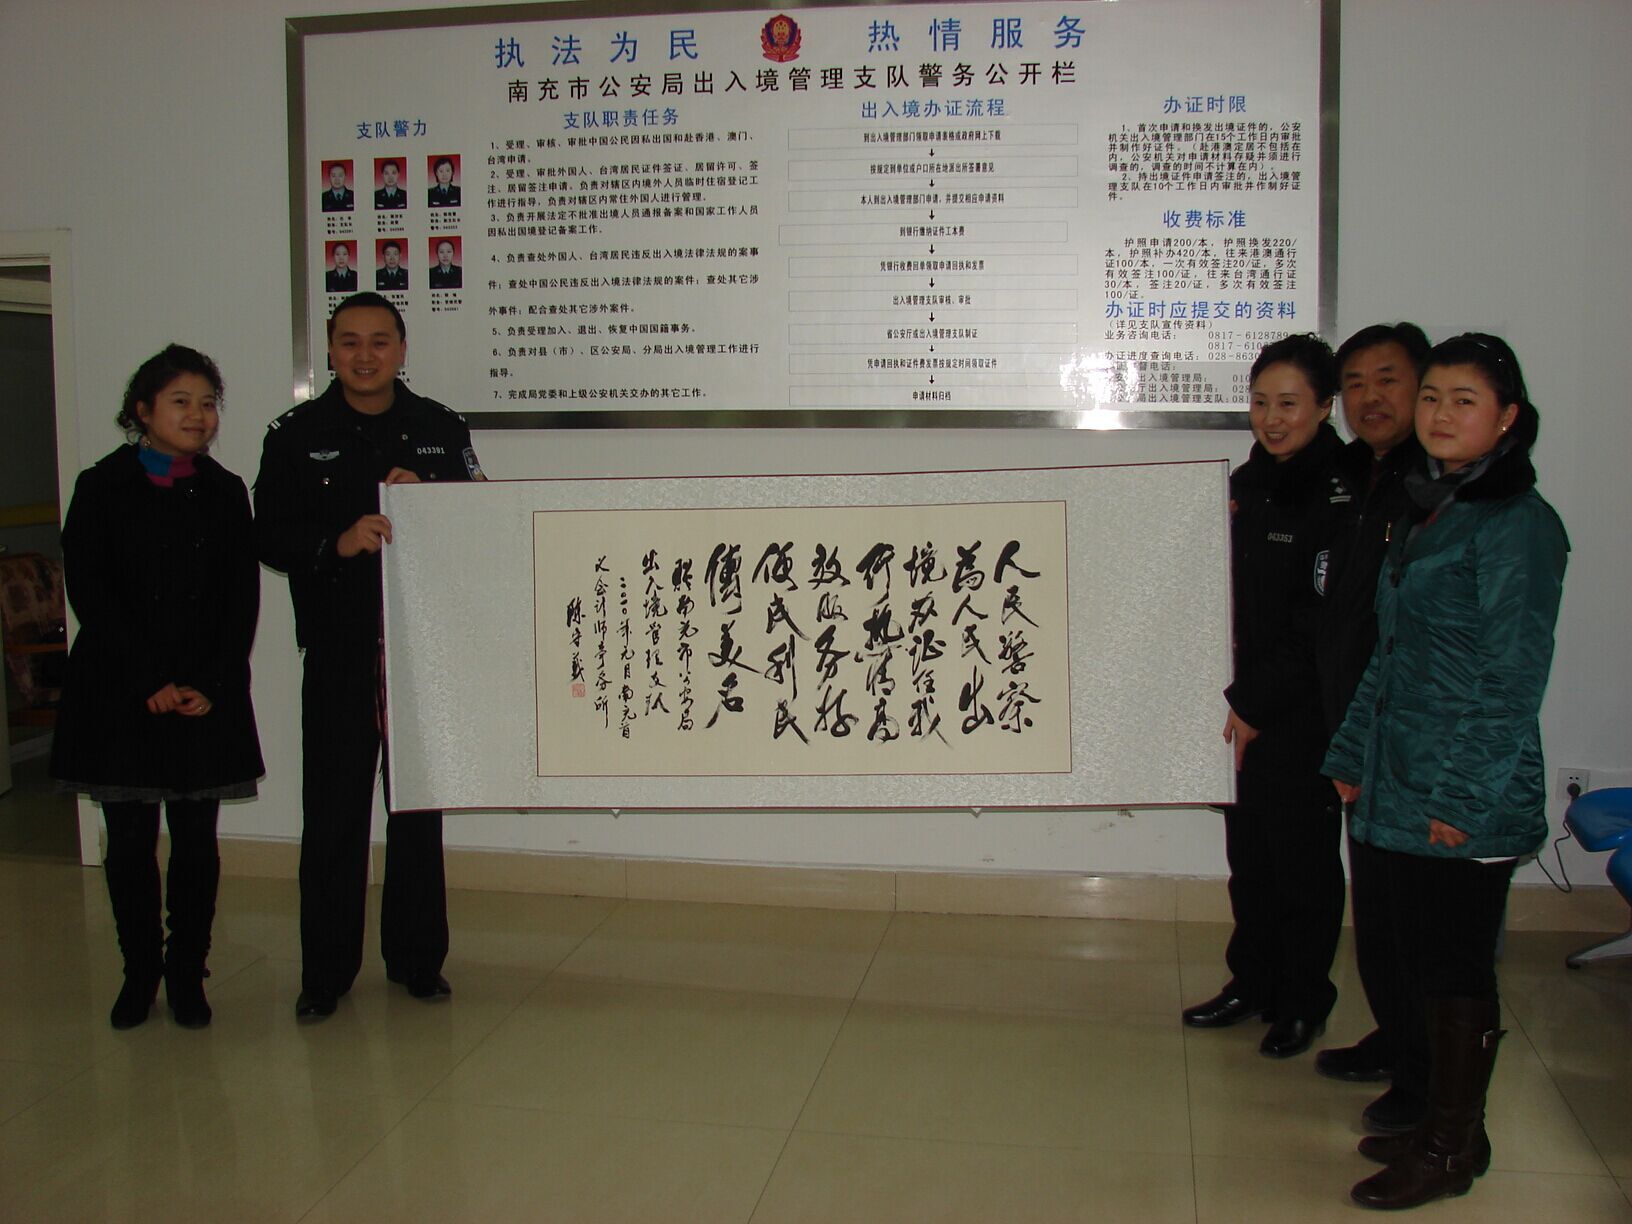 执法为民 热情服务
南充市公安局出入境管理支队警务公开栏
支队警力
支队职责任务
1、受理、审核、审批中国公民因私出国和赴香港、澳门、
台湾申请。
2、受理、审批外国人、台湾居民证件签证、居留许可、签
注、居留签注申请。负责对辖区内境外人员临时住宿登记工
作进行指导，负责对辖区内常住外国人进行管理。
3、负责开展法定不批准出境人员通报备案和国家工作人员
因私出国境登记备案工作。
4、负责查处外国人、台湾居民违反出入境法律法规的案事
件；查处中国公民违反出入境法律法规的案件；查处其它涉
外事件；配合查处其它涉外案件。
5、负责受理加入、退出、恢复中国国籍事务。
6、负责对县（市）、区公安局、分局出入境管理工作进行
指导。
7、完成局党委和上级公安机关交办的其它工作。
出入境办证流程
到出入境管理部门领取申请表格或政府网上下载
按规定到单位或户口所在地派出所签署意见
本人到出入境管理部门申请，并提交相应申请资料
到银行缴纳证件工本费
凭银行收费回单领取申请回执和发票
出入境管理支队审核、审批
省公安厅或出入境管理支队制证
凭申请回执和证件费发票按规定时间领取证件
申请材料归档
办证时限
1、首次申请和换发出境证件的，公安
机关出入境管理部门在15个工作日内审批
并制作好证件。（赴港澳定居不包括在
内，公安机关对申请材料存疑并须进行
调查的，调查的时间不计算在内）。
2、持出境证件申请签注的，出入境管理
支队在10个工作日内审批并作制好证
件。
收费标准
护照申请200/本，护照换发220/
本，护照补办420/本，往来港澳通行
证100/本，一次有效签注20/证，多次
有效签注100/证，往来台湾通行证
30/本，签注20/证，多次有效签注
100/证。
办证时应提交的资料
（详见支队宣传资料）
业务咨询电话： 0817-6128789
0817-610
办证进度查询电话：028-8630
督电话：
出入境管理局： 010
厅出入境管理局： 028
局出入境管理支队:081
043391
043353
人民警察
为人民出
境办证在我
行热情高
效服务好
便民利民
传美名
赠南充市公安局
出入境管理支队
二〇一〇年元月南充首
义会计师事务所
陈守义